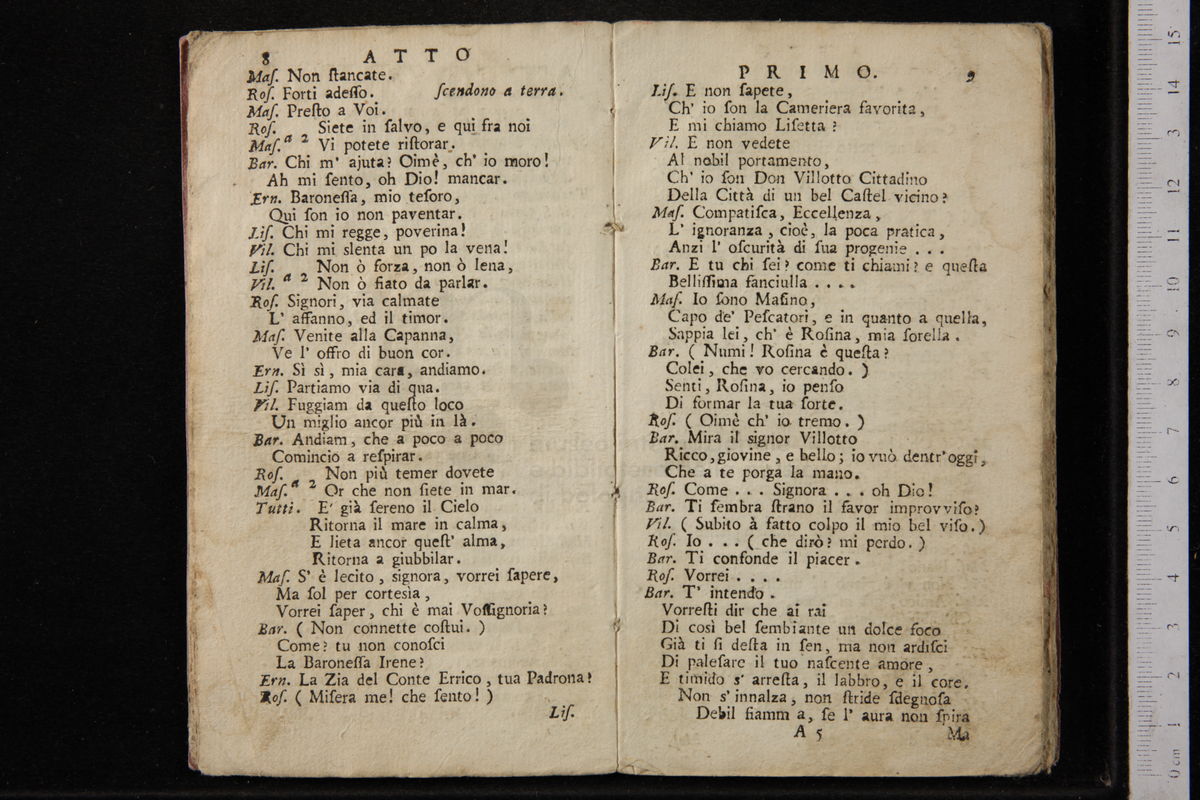 8 ATTO
Maſ. Non ſtancate.
Roſ. Forti adeſſo. ſcendono a terra.
Maſ. Preſto a Voi.
Roſ. Siete in ſalvo, e qui fra noi
Maſ. a 2 Vi potete riſtorar.
Bar. Chi m' ajuta? Oimè, ch' io moro!
Ah mi ſento, oh Dio! mancar.
Ern. Baroneſſa, mio teſoro,
Qui ſon io non paventar.
Liſ. Chi mi regge, poverina!
Vil. Chi mi slenta un po la vena!
Liſ. Non ò forza, non ò lena,
Vil. a 2 Non ò fiato da parlar.
Roſ. Signori, via calmate
L' affanno, ed il timor.
Maſ. Venite alla Capanna,
Ve l' offro di buon cor.
Ern. Sì sì, mia cara, andiamo.
Liſ. Partiamo via di qua.
Vil. Fuggiam da queſto loco
Un miglio ancor più in là.
Bar. Andiam, che a poco a poco
Comincio a reſpirar.
Roſ. Non più temer dovete
Maſ. a 2 Or che non ſiete in mar.
Tutti. E' già ſereno il Cielo
Ritorna il mare in calma,
E lieta ancor queſt' alma,
Ritorna a giubbilar.
Maſ. S' è lecito, signora, vorrei ſapere,
Ma ſol per cortesia,
Vorrei ſaper, chi è mai Voſſignoria?
Bar. ( Non connette coſtui. )
Come? tu non conoſci
La Baroneſſa Irene?
Ern. La Zia del Conte Errico, tua Padrona?
Roſ. ( Miſera me! che ſento! )
Liſ.
PRIMO. 9
Liſ. E non ſapete,
Ch' io ſon la Cameriera favorita,
E mi chiamo Liſetta?
Vil. E non vedete
Al nobil portamento,
Ch' io ſon Don Villotto Cittadino
Della Città di un bel Caſtel vicino?
Maſ. Compatiſca, Eccellenza,
L' ignoranza, cioè, la poca pratica,
Anzi l' oſcurità di ſua progenie . . .
Bar. E tu chi ſei? come ti chiami? e queſta
Belliſſima fanciulla . . . .
Maſ. Io ſono Maſino,
Capo de' Peſcatori, e in quanto a quella,
Sappia lei, ch' è Roſina, mia ſorella.
Bar. ( Numi! Roſina è queſta?
Colei, che vo cercando. )
Senti, Roſina, io penſo
Di formar la tua ſorte.
Roſ. ( Oimè ch' io tremo. )
Bar. Mira il signor Villotto
Ricco, giovine, e bello; io vuò dentr' oggi,
Che a te porga la mano.
Roſ. Come . . . Signora . . . oh Dio!
Bar. Ti ſembra ſtrano il favor improvviſo?
Vil. ( Subito à fatto colpo il mio bel viſo. )
Roſ. Io . . . ( che dirò? mi perdo. )
Bar. Ti confonde il piacer.
Roſ. Vorrei . . . .
Bar. T' intendo.
Vorreſti dir che ai rai
Di così bel ſembiante un dolce foco
Già ti ſi deſta in ſen, ma non ardiſci
Di paleſare il tuo naſcente amore,
E timido s' arreſta, il labbro, e il core.
Non s' innalza, non ſtride ſdegnoſa
Debil fiamm a, ſe l' aura non ſpira
A 5 Ma